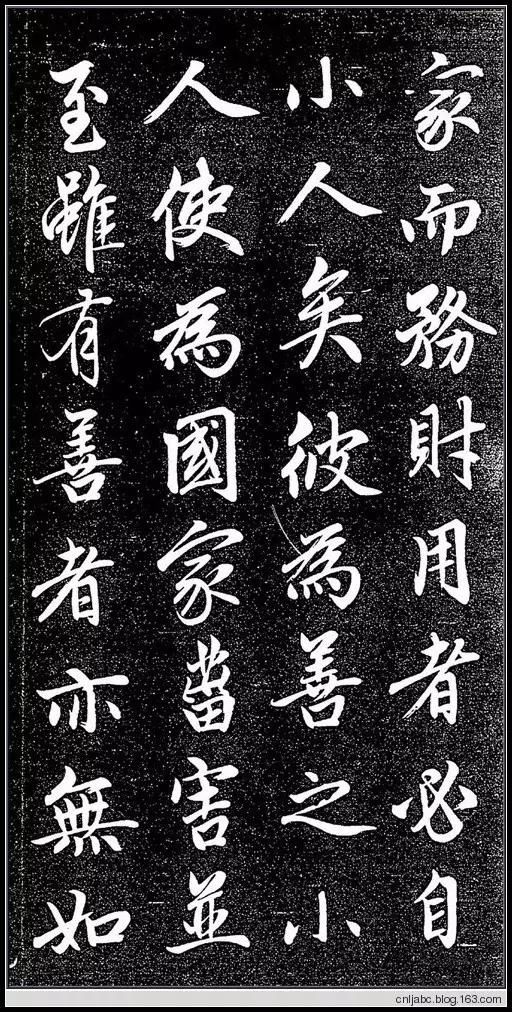 家而務財用者必自
小人矣彼為善之小
人使為國家菑害並
至雖有善者亦無如
cnljabc.blog.163.com